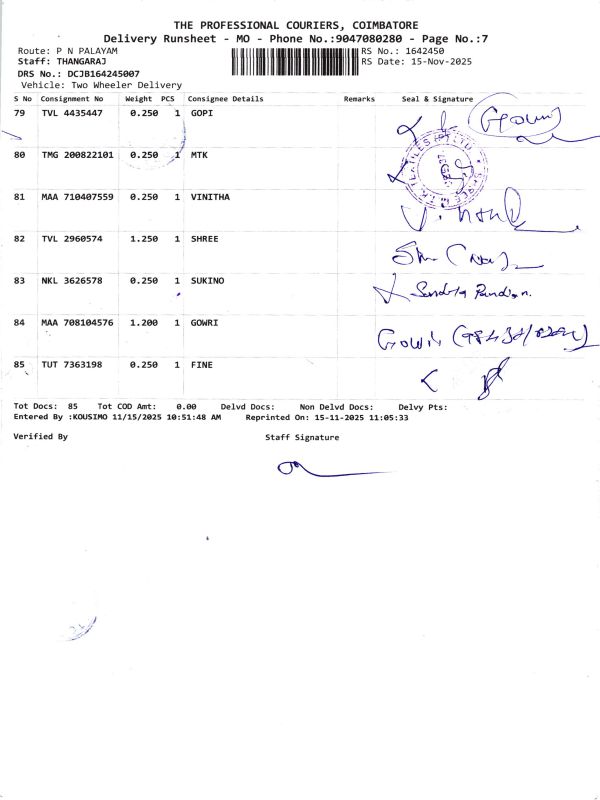 THE PROFESSIONAL COURIERS, COIMBATORE
Delivery Runsheet - MO - Phone No.:9047080280 - Page No.:7
Route: P N PALAYAM RS No.: 1642450
Staff: THANGARAJ RS Date: 15-Nov-2025
DRS No.: DCJB164245007
Vehicle: Two Wheeler Delivery
S No Consignment No Weight PCS Consignee Details Remarks Seal & Signature
79 TVL 4435447 0.250 1 GOPI
80 TMG 200822101 0.250 1 MTK
81 MAA 710407559 0.250 1 VINITHA
82 TVL 2960574 1.250 1 SHREE
83 NKL 3626578 0.250 1 SUKINO
84 MAA 708104576 1.200 1 GOWRI
85 TUT 7363198 0.250 1 FINE
Tot Docs: 85 Tot COD Amt: 0.00 Delvd Docs: Non Delvd Docs: Delvy Pts:
Entered By :KOUSIMO 11/15/2025 10:51:48 AM Reprinted On: 15-11-2025 11:05:33
Verified By Staff Signature